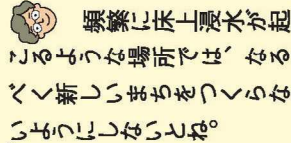 頻繁に床上浸水が起
こるような場所では、なる
べく新しいまちをつくらな
いようにしないとね。